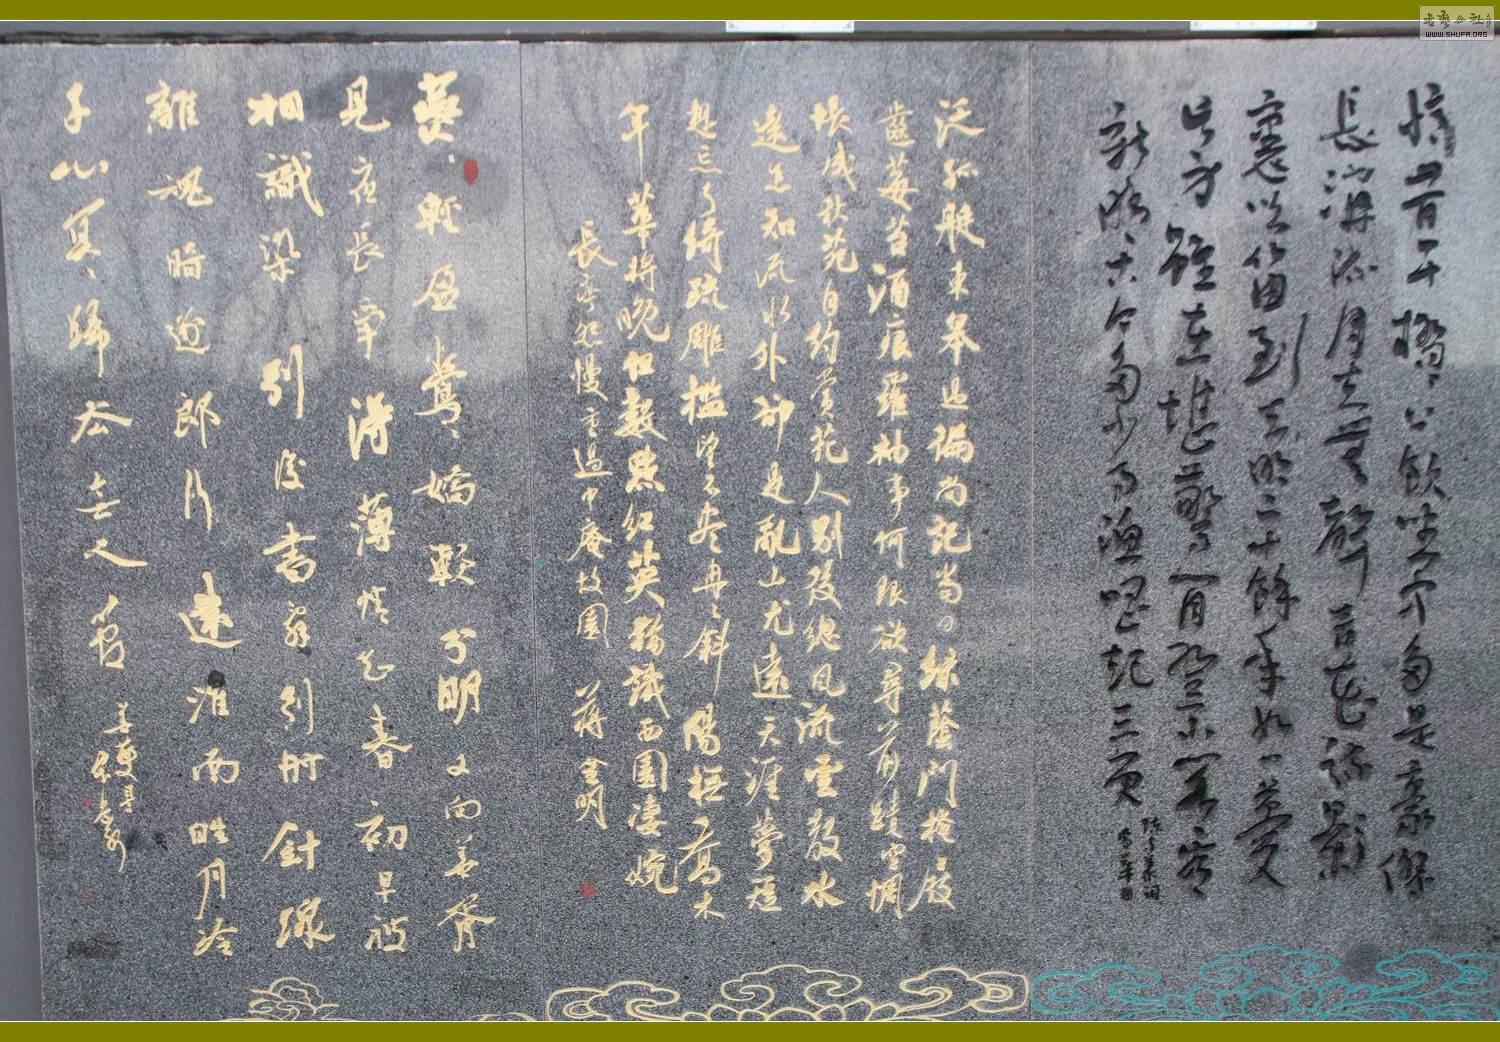 憶昔午橋〻上飲坐中多是豪傑
長溝流月去無聲杏花疏影
裏吹笛到天明二十餘年如一夢
此身雖在堪驚閒登小閣看
新晴古今多少事漁唱起三更
陳與義詞
泛孤艇東皋過遍尚記當日綠蔭門掩屐
齒莓苔酒痕羅袖事何限欲尋前蹟空惆
悵成秋苑自約賞花人別後總風流雲散水
遠怎知流水外卻是亂山尤遠天涯夢短
想忘了綺疏雕檻望不盡冉〻斜陽撫喬木
年華將晚但數點紅英猶識西園淒婉
長亭怨慢重過中庵故園 蔣金明
燕〻輕盈鶯〻嬌軟分明又向華胥
見夜長爭得薄情知春初早被
相識染別後書辭別時針線
離魂暗逐郎行遠淮南皓月冷
千山冥〻歸去無人管
姜夔
WWW.SHUFA.ORG